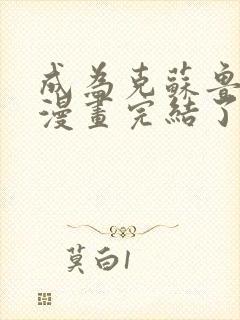 成為克蘇魯
漫畫完結了
莫白1